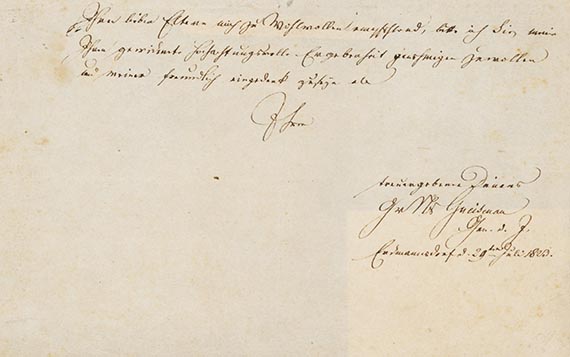 Ihren lieben Eltern mich zu Wohlwollen empfehlend, bitte ich Sie, meine
Ihnen gewidmet hochachtungsvolle Ergebenheit genehmigen zu wollen
und meiner freundlich eingedenk zu seyn als
Ihren
treuergebenen Diener
Gr N v Gneisenau
Gen. d. J.
Erdmannsdorf d. 29ten Juli 1823.